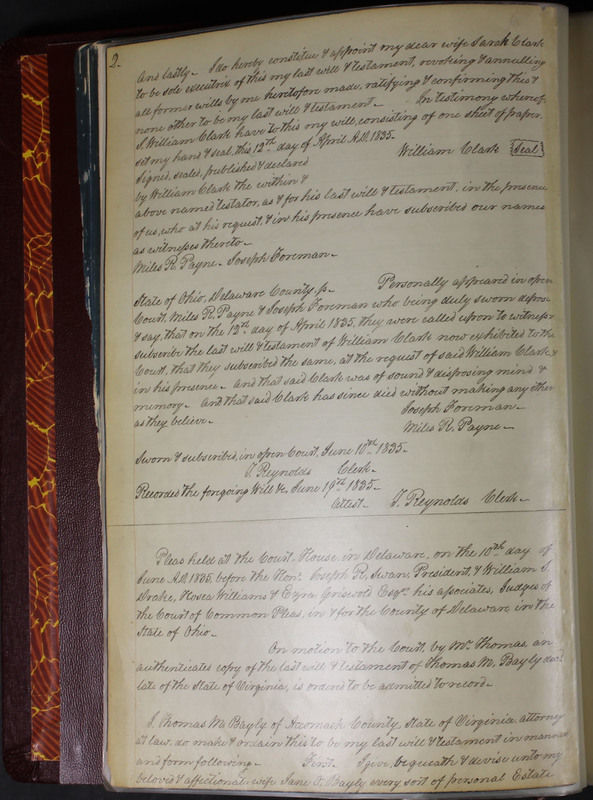 2.
And lastly - I do hereby constitue & appoint my dear wife Sarah Clark
to be sole executrix of this my last will & testament, revoking & annulling
all former wills by me heretofore made, ratifying & confirming this &
none other to be my last will & testament - In testimony whereof
I William Clark have to this my will, consisting of one sheet of paper,
set my hand & seal, this 12th day of April A.D. 1835.
William Clark {Seal}
Signed, sealed, published & declared
by William Clark the within &
above named testator, as & for his last will & testament, in the presence
of us, who at his request, & in his presence have subscribed our names
as witnesses thereto -
Miles R. Payne - Joseph Foreman -
State of Ohio, Delaware County, ss - Personally appeared in open
Court, Miles R. Payne & Joseph Foreman who being duly sworn depose
& say, that on the 12th day of April 1835, they were called upon to witness &
subscribe the last will & testament of William Clark now exhibited to the
Court, that they subscribed the same, at the request of said William Clark &
in his presence - And that said Clark was of sound & disposing mind &
memory - And that said Clark has since died without making any other
as they believe -
Joseph Foreman -
Miles R. Payne -
Sworn & subscribed, in open Court, June 10th 1835 -
T. Reynolds Clerk -
Recorded the forgoing Will &c, June 19th 1835 -
Attest - T. Reynolds Clerk -
Pleas held at the Court-House, in Delaware, on the 10th day of
June A.D. 1835, before the Hon. Joseph R. Swan, President, & William S.
Drake, Hosea Williams & Ezra Griswold Esqrs his associates, Judges of
the Court of Common Pleas, in & for the County of Delaware in the
State of Ohio -
On motion to the Court, by Mr. Thomas, an
authenticated copy of the last will & testament of Thomas M. Bayly decd
late of the State of Virginia, is ordered to be admitted to record -
I, Thomas M. Bayly of Accomack County, State of Virginia, attorney
at law, do make & ordain this to be my last will & testament in manner
and form following - First - I give, bequeath & devise unto my
beloved & affectionate wife Jane O. Bayly every sort of personal Estate